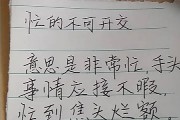 忙的不可开交
意思是非常忙，手头
事情应接不暇，
忙到焦头烂额，